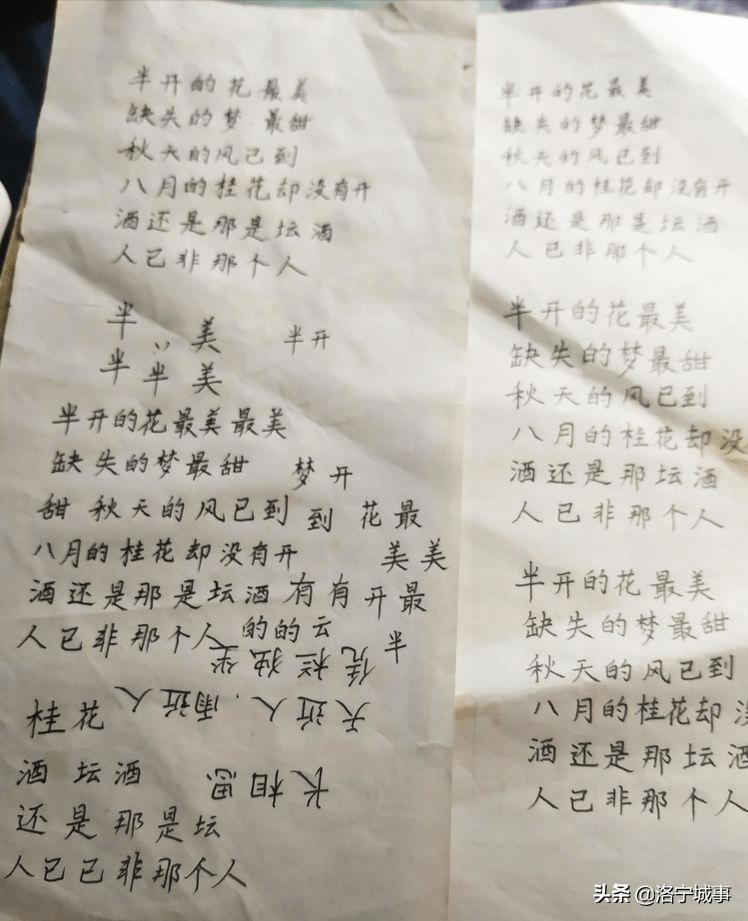 半开的花最美
缺失的梦.最甜
秋天的风已到
八月的桂花却没有开
酒还是那是坛酒
人已非那个人
半 美 半开
半 半 美
半开的花最美最美
缺失的梦最甜 梦开
甜 秋天的风已到 到 花最
八月的桂花却没有开 美美
酒还是那是坛酒 有有开最
人已非那个人 的的云
半
凭栏独坐
桂花
天近人.雨近人
酒 坛酒
长相思
还是那是坛
人已已非那个人
半开的花最美
缺失的梦最甜
秋天的风已到
八月的桂花却没有开
酒还是那是坛酒
人已非那个人
半开的花最美
缺失的梦最甜
秋天的风已到
八月的桂花却没
酒还是那坛酒
人已非那个人
半开的花最美
缺失的梦最甜
秋天的风已到
八月的桂花却没
酒还是那坛酒
人已非那个人
头条 @洛宁城事